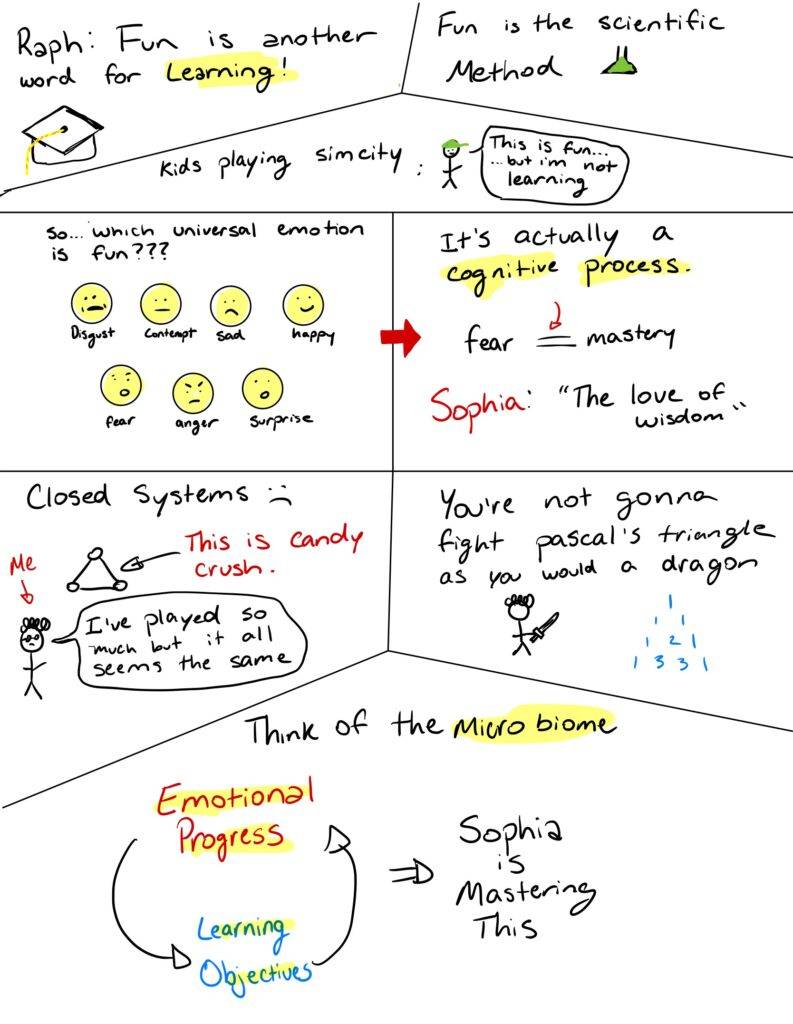 Raph: Fun is another
word for Learning!
Fun is the scientific
Method
Kids playing simcity :
This is fun...
...but i'm not
learning
So... which universal emotion
is fun???
Disgust
Contempt
sad
happy
fear
anger
Surprise
It's actually a
cognitive process.
fear = mastery
Sophia: "The love of
wisdom"
Closed Systems :(
This is candy
crush.
Me
I've played so
much but it all
seems the same
You're not gonna
fight pascal's triangle
as you would a dragon
1
1 1
1 2 1
1 3 3 1
Think of the Micro biome
Emotional
Progress
Learning
Objectives
Sophia
is
Mastering
This